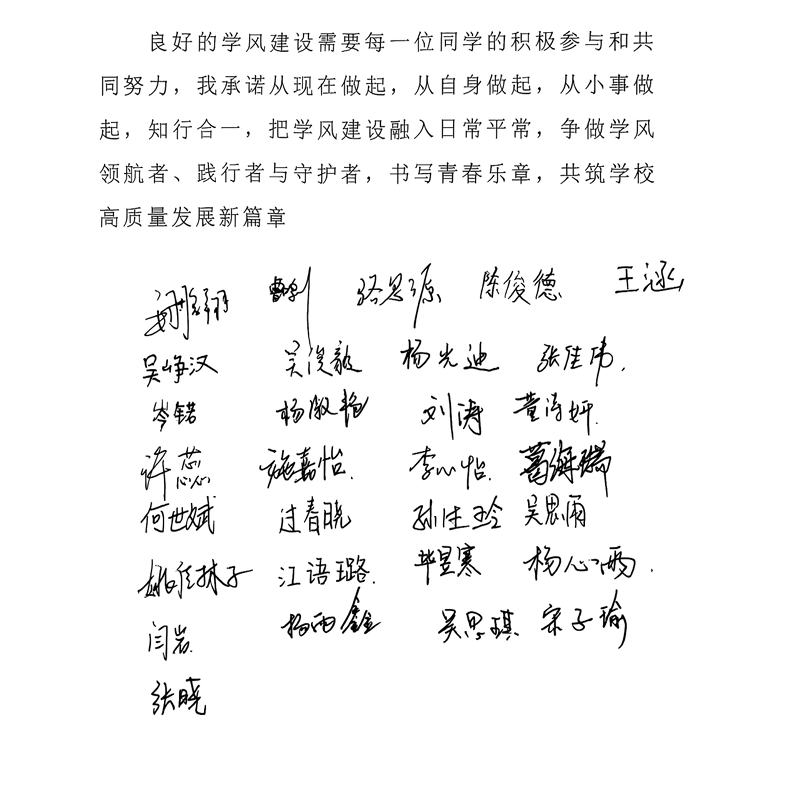 良好的学风建设需要每一位同学的积极参与和共
同努力，我承诺从现在做起，从自身做起，从小事做
起，知行合一，把学风建设融入日常平常，争做学风
领航者、践行者与守护者，书写青春乐章，共筑学校
高质量发展新篇章
骆思源 陈俊德 王涵
吴峥汉 吴俊毅 杨先迪 张佳伟.
岑锘 杨淑艳 刘涛
许蕊 施嘉怡. 李心怡. 葛海瑞
何世斌 过春晓 孙佳玲 吴思雨
林子 江语璐. 毕昱寒 杨心雨.
闫岩. 杨雨鑫 吴思琪 宋子瑜
张晓